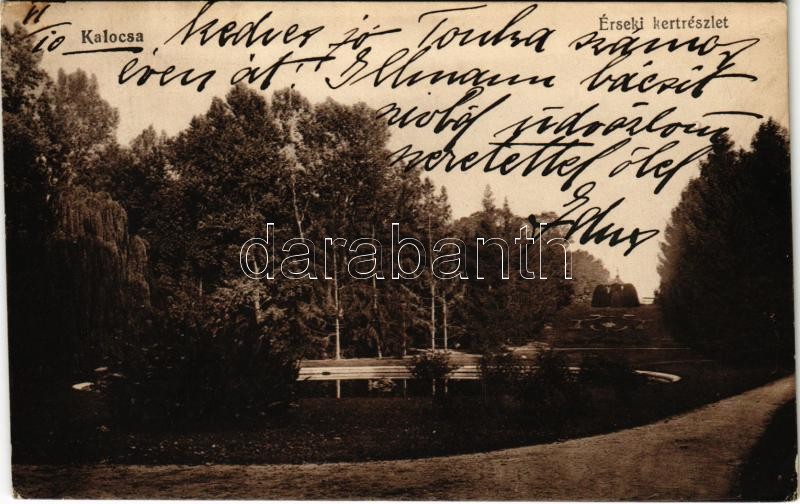 VI
10
Kalocsa
Érseki kertrészlet
Kedves jó Tonka számos
éven át! Ellmann bácsit
üdvözlöm
szeretettel ölel
darabanth